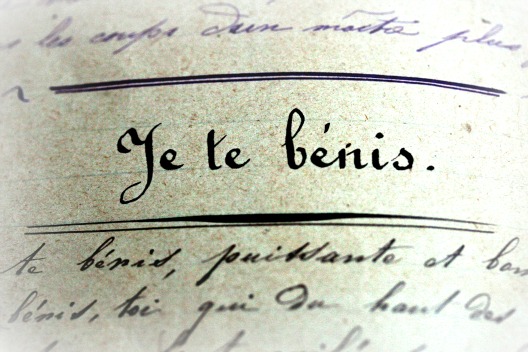 les coups d'un maître plus
Je te bénis.
te bénis, puissante et bon
bénis, toi qui du haut des